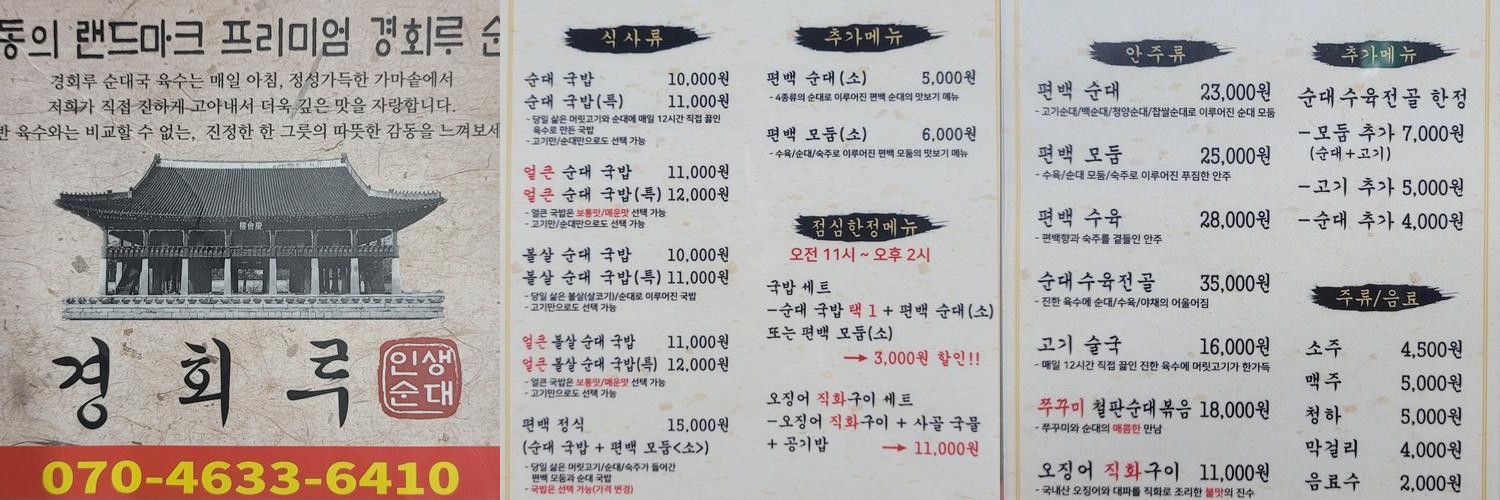 동의 랜드마크 프리미엄 경회루 순
경회루 순대국 육수는 매일 아침, 정성가득한 가마솥에서
저희가 직접 진하게 고아내서 더욱 깊은 맛을 자랑합니다.
반 육수와는 비교할 수 없는, 진정한 한 그릇의 따뜻한 감동을 느껴보세
樓會慶
경 회 루
인생
순대
070-4633-6410
식사류
순대 국밥 10,000원
순대 국밥(특) 11,000원
- 당일 삶은 머릿고기와 순대에 매일 12시간 직접 끓인
육수로 만든 국밥
- 고기만/순대만으로도 선택 가능
얼큰 순대 국밥 11,000원
얼큰 순대 국밥(특) 12,000원
- 얼큰 국밥은 보통맛/매운맛 선택 가능
- 고기만/순대만으로도 선택 가능
볼살 순대 국밥 10,000원
볼살 순대 국밥(특) 11,000원
- 당일 삶은 볼살(살코기)/순대로 이루어진 국밥
- 고기만으로도 선택 가능
얼큰 볼살 순대 국밥 11,000원
얼큰 볼살 순대 국밥(특) 12,000원
- 얼큰 국밥은 보통맛/매운맛 선택 가능
- 고기만으로도 선택 가능
편백 정식 15,000원
(순대 국밥 + 편백 모둠<소>)
- 당일 삶은 머릿고기/순대/숙주가 들어간
편백 모둠과 순대 국밥
- 국밥은 선택 가능(가격 변경)
추가메뉴
편백 순대(소) 5,000원
- 4종류의 순대로 이루어진 편백 순대의 맛보기 메뉴
편백 모둠(소) 6,000원
- 수육/순대/숙주로 이루어진 편백 모둠의 맛보기 메뉴
점심한정메뉴
오전 11시 ~ 오후 2시
국밥 세트
-순대 국밥 택 1 + 편백 순대(소)
또는 편백 모둠(소)
→ 3,000원 할인!!
오징어 직화구이 세트
-오징어 직화구이 + 사골 국물
+ 공기밥 → 11,000원
안주류
편백 순대 23,000원
- 고기순대/백순대/청양순대/찹쌀순대로 이루어진 순대 모둠
편백 모둠 25,000원
- 수육/순대 모둠/숙주로 이루어진 푸짐한 안주
편백 수육 28,000원
- 편백향과 숙주를 곁들인 안주
순대수육전골 35,000원
- 진한 육수에 순대/수육/야채의 어울어짐
고기 술국 16,000원
- 매일 12시간 직접 끓인 진한 육수에 머릿고기가 한가득
쭈꾸미 철판순대볶음 18,000원
- 쭈꾸미와 순대의 매콤한 만남
오징어 직화구이 11,000원
- 국내산 오징어와 대파를 직화로 조리한 불맛의 진수
추가메뉴
순대수육전골 한정
-모둠 추가 7,000원
(순대+고기)
-고기 추가 5,000원
-순대 추가 4,000원
주류/음료
소주 4,500원
맥주 5,000원
청하 5,000원
막걸리 4,000원
음료수 2,000원